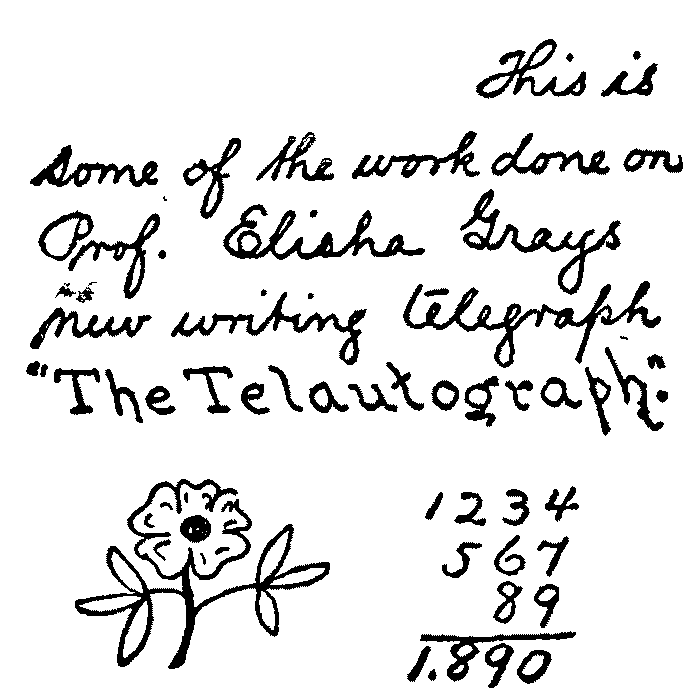 This is
some of the work done on
Prof. Elisha Grays
new writing telegraph
"The Telautograph".
1234
567
89
1.890